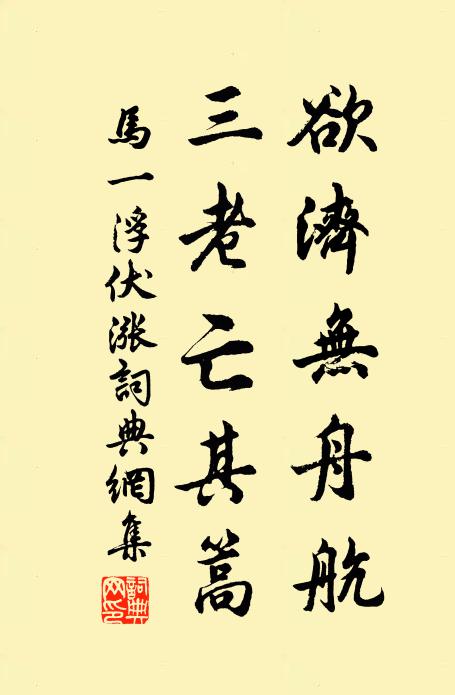 欲濟無舟航
三老亡其篙
馬一浮伏漲詞典網集
詞典網印